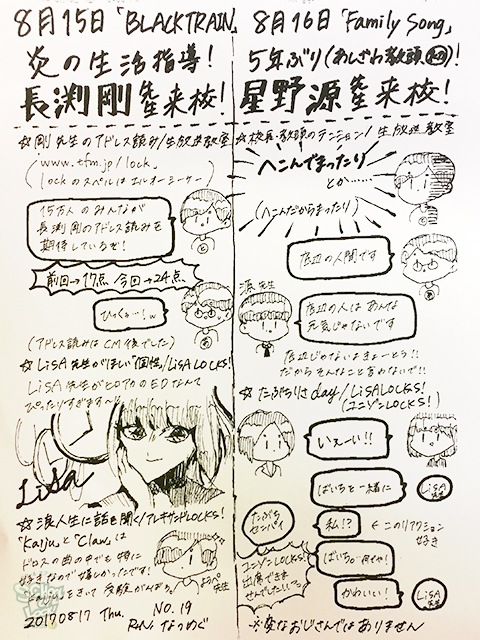 8月15日「BLACKTRAIN」
炎の生活指導!
長渕剛先生来校!
☆剛先生のアドレス読み/生放送教室
www.tfm.jp/lock
(lockのスペルはエルオーシーケー)
15万人のみんなが
長渕剛のアドレス読みを
期待しているぜ!
前回→17点 今回→24点
ひっくぅ…!w
(アドレス読みはCM後でした)
☆LiSA先生がほしい"個性"/LiSA LOCKS!
LiSA先生がヒロアカのEDなんて
ぴったりすぎます〜
LiSA
☆浪人生に話を聞く/アレキサンドLOCKS!
「Kaiju」と「Claw」は
ドロスの曲の中でも特に
好きなので嬉しかったです!
きいて受験がんばろ。
先生
20170817 Thu. NO.19
R.N. なつめぐ
8月16日「Family Song」
5年ぶり(あしざわ教頭初)!
星野源先生来校!
☆校長・教頭のテンション/生放送教室
へこんでまったり
とか……
(へこんだからまったり)
底辺の人間です
源先生
底辺の人はあんな
元気じゃないです
底辺じゃないよきょーとう!!
だからそんなこと言わないで!!
☆たぶちりさday/LiSA LOCKS!
(ユニゾンLOCKS!)
いえーい!!
ばいちと一緒に
LiSA先生
たぶち
センパイ
私!?
←このリアクション
好き
ユニゾンLOCKS!
出席できま
せんでしたい…っ
かわいい!
LiSA先生
※変なおじさんではありません